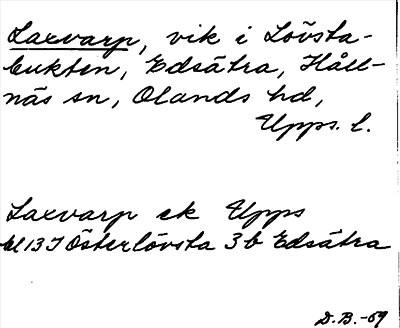 Laxvarp, vik i Lövsta-
bukten, Edsätra, Håll-
näs sn, Olands hd,
Upps. l.
Laxvarp ek Upps
bl 13 I Österlövsta 3b Edsätra
D.B.-69